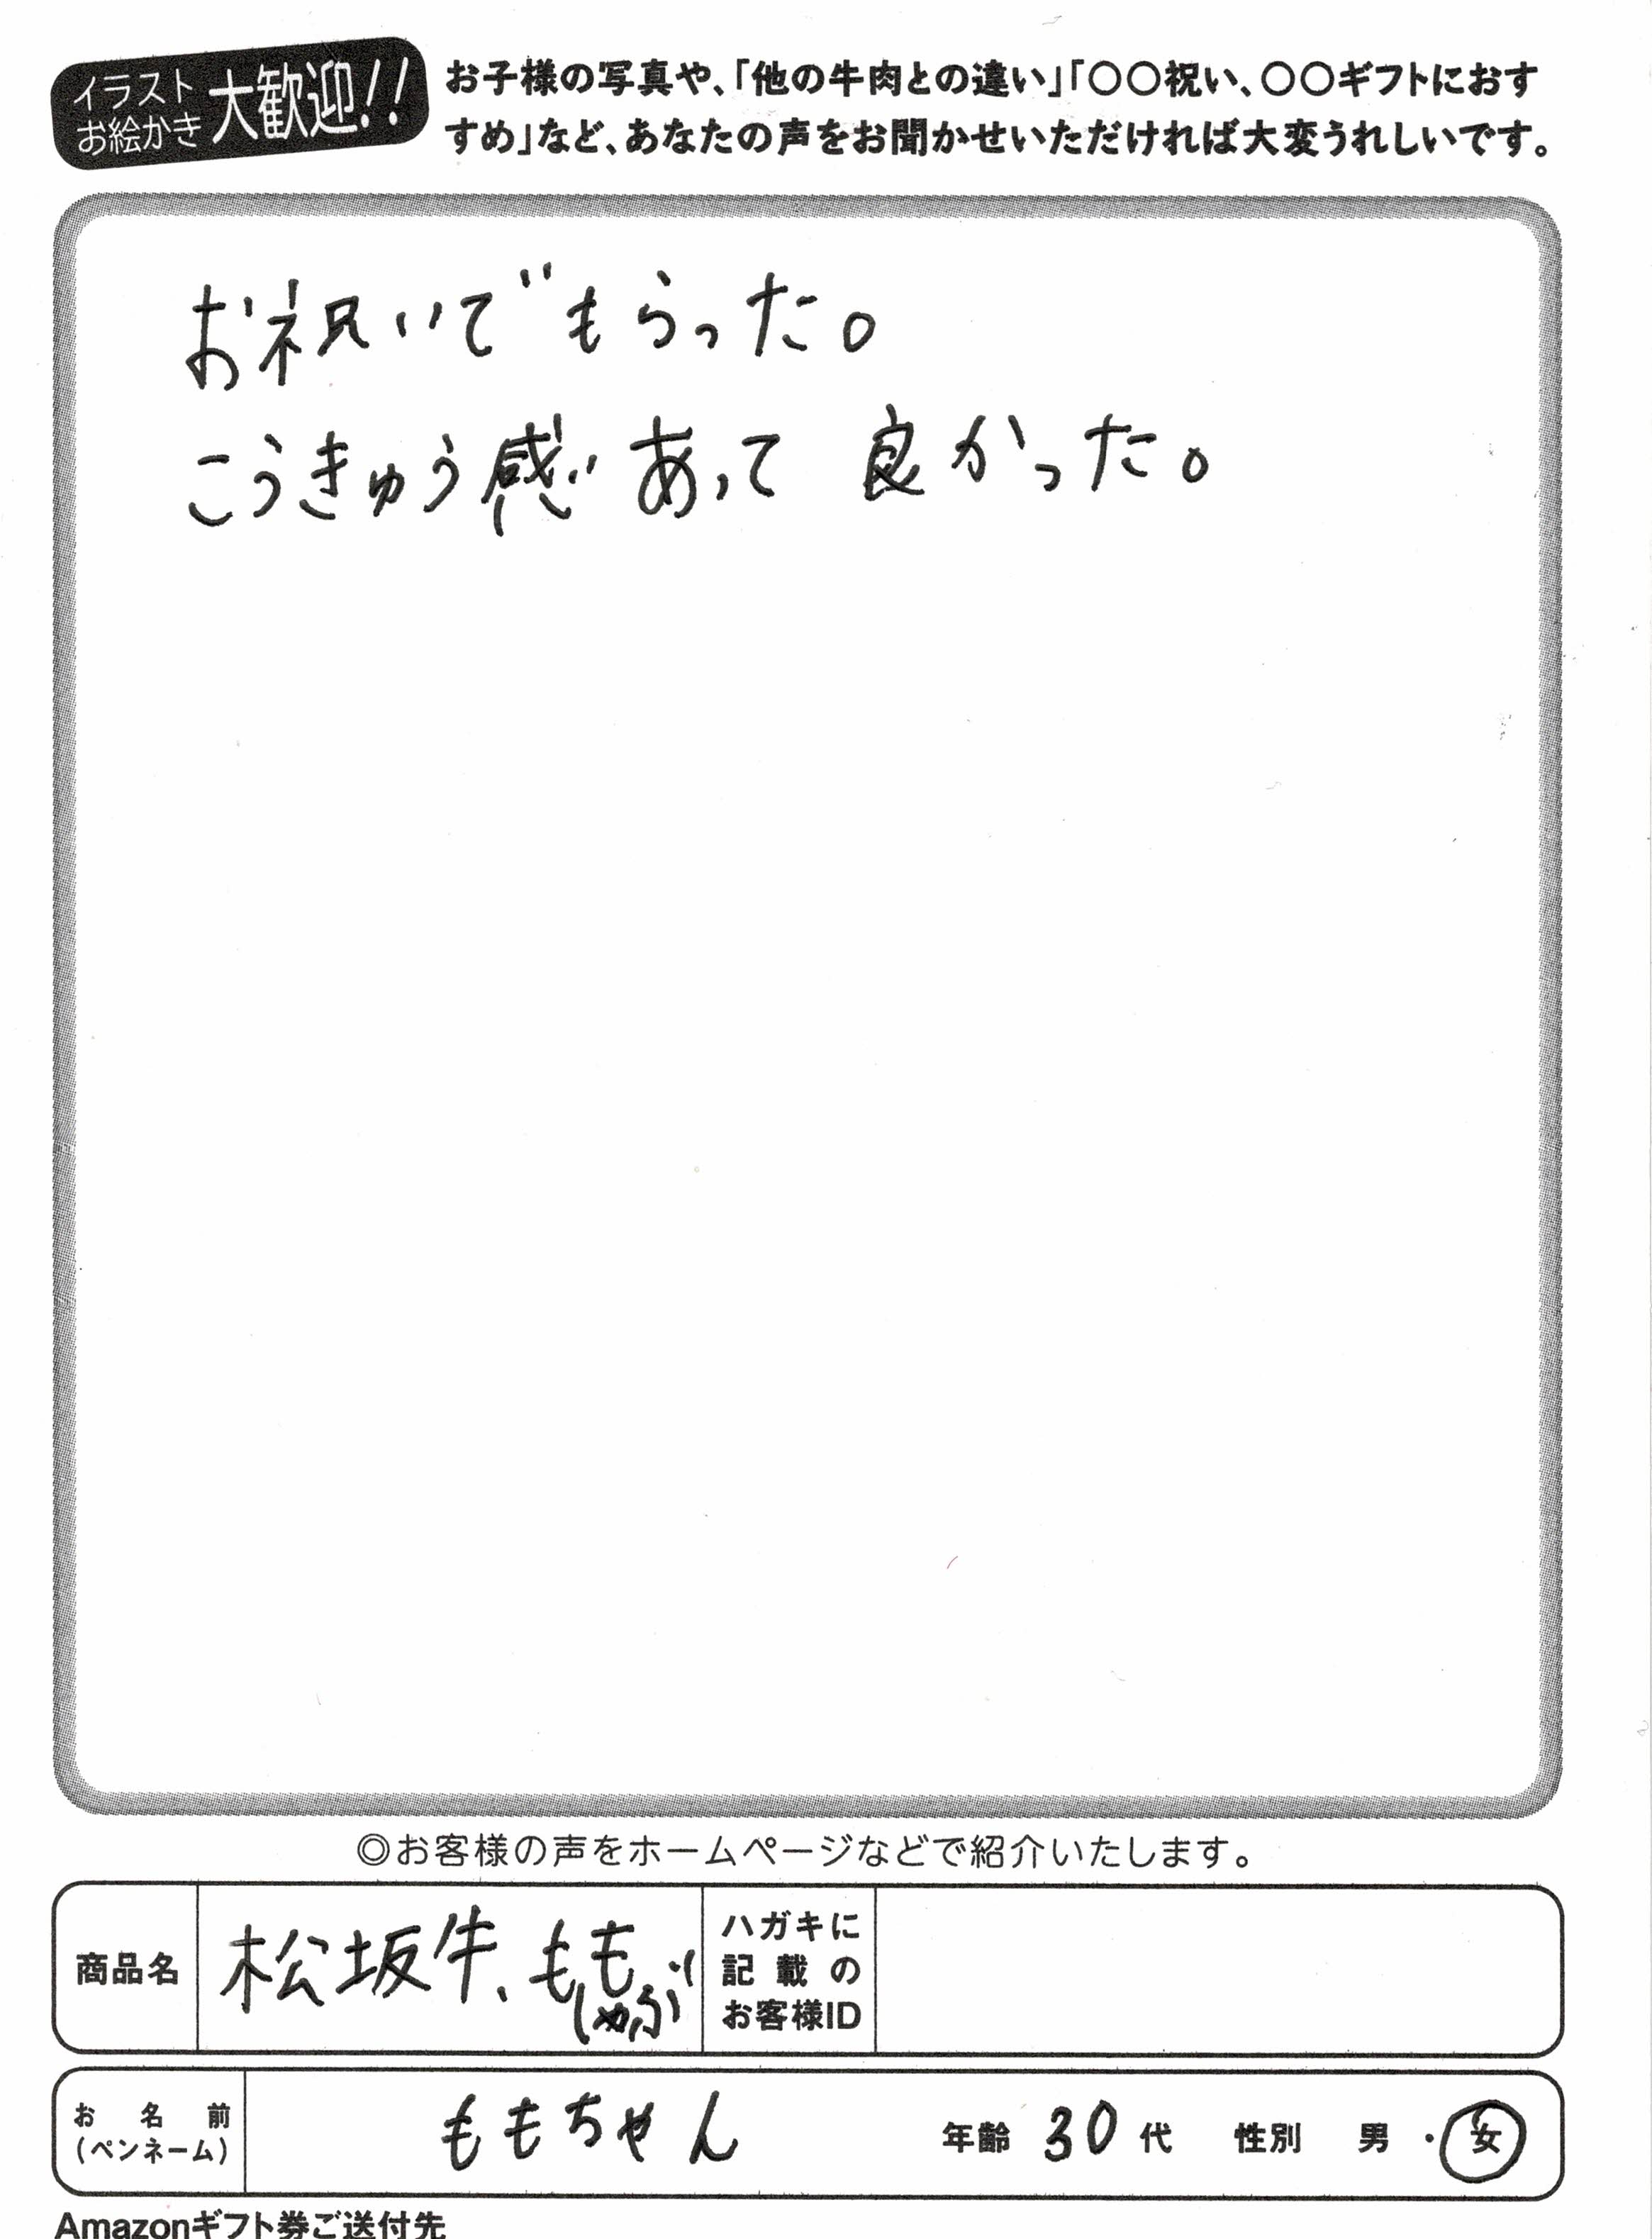 イラスト
お絵かき
大歓迎!!
お子様の写真や、「他の牛肉との違い」「〇〇祝い、〇〇ギフトにおす
すめ」など、あなたの声をお聞かせいただければ大変うれしいです。
お祝いでもらった。
こうきゅう感あって 良かった。
◎お客様の声をホームページなどで紹介いたします。
商品名
松坂牛、もも
しゃぶ
ハガキに
記載の
お客様ID
お名前
(ペンネーム)
ももちゃん
年齢 30 代 性別 男・女
Amazonギフト券ご送付先